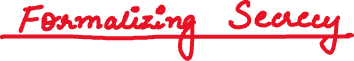 Formalizing Secrecy